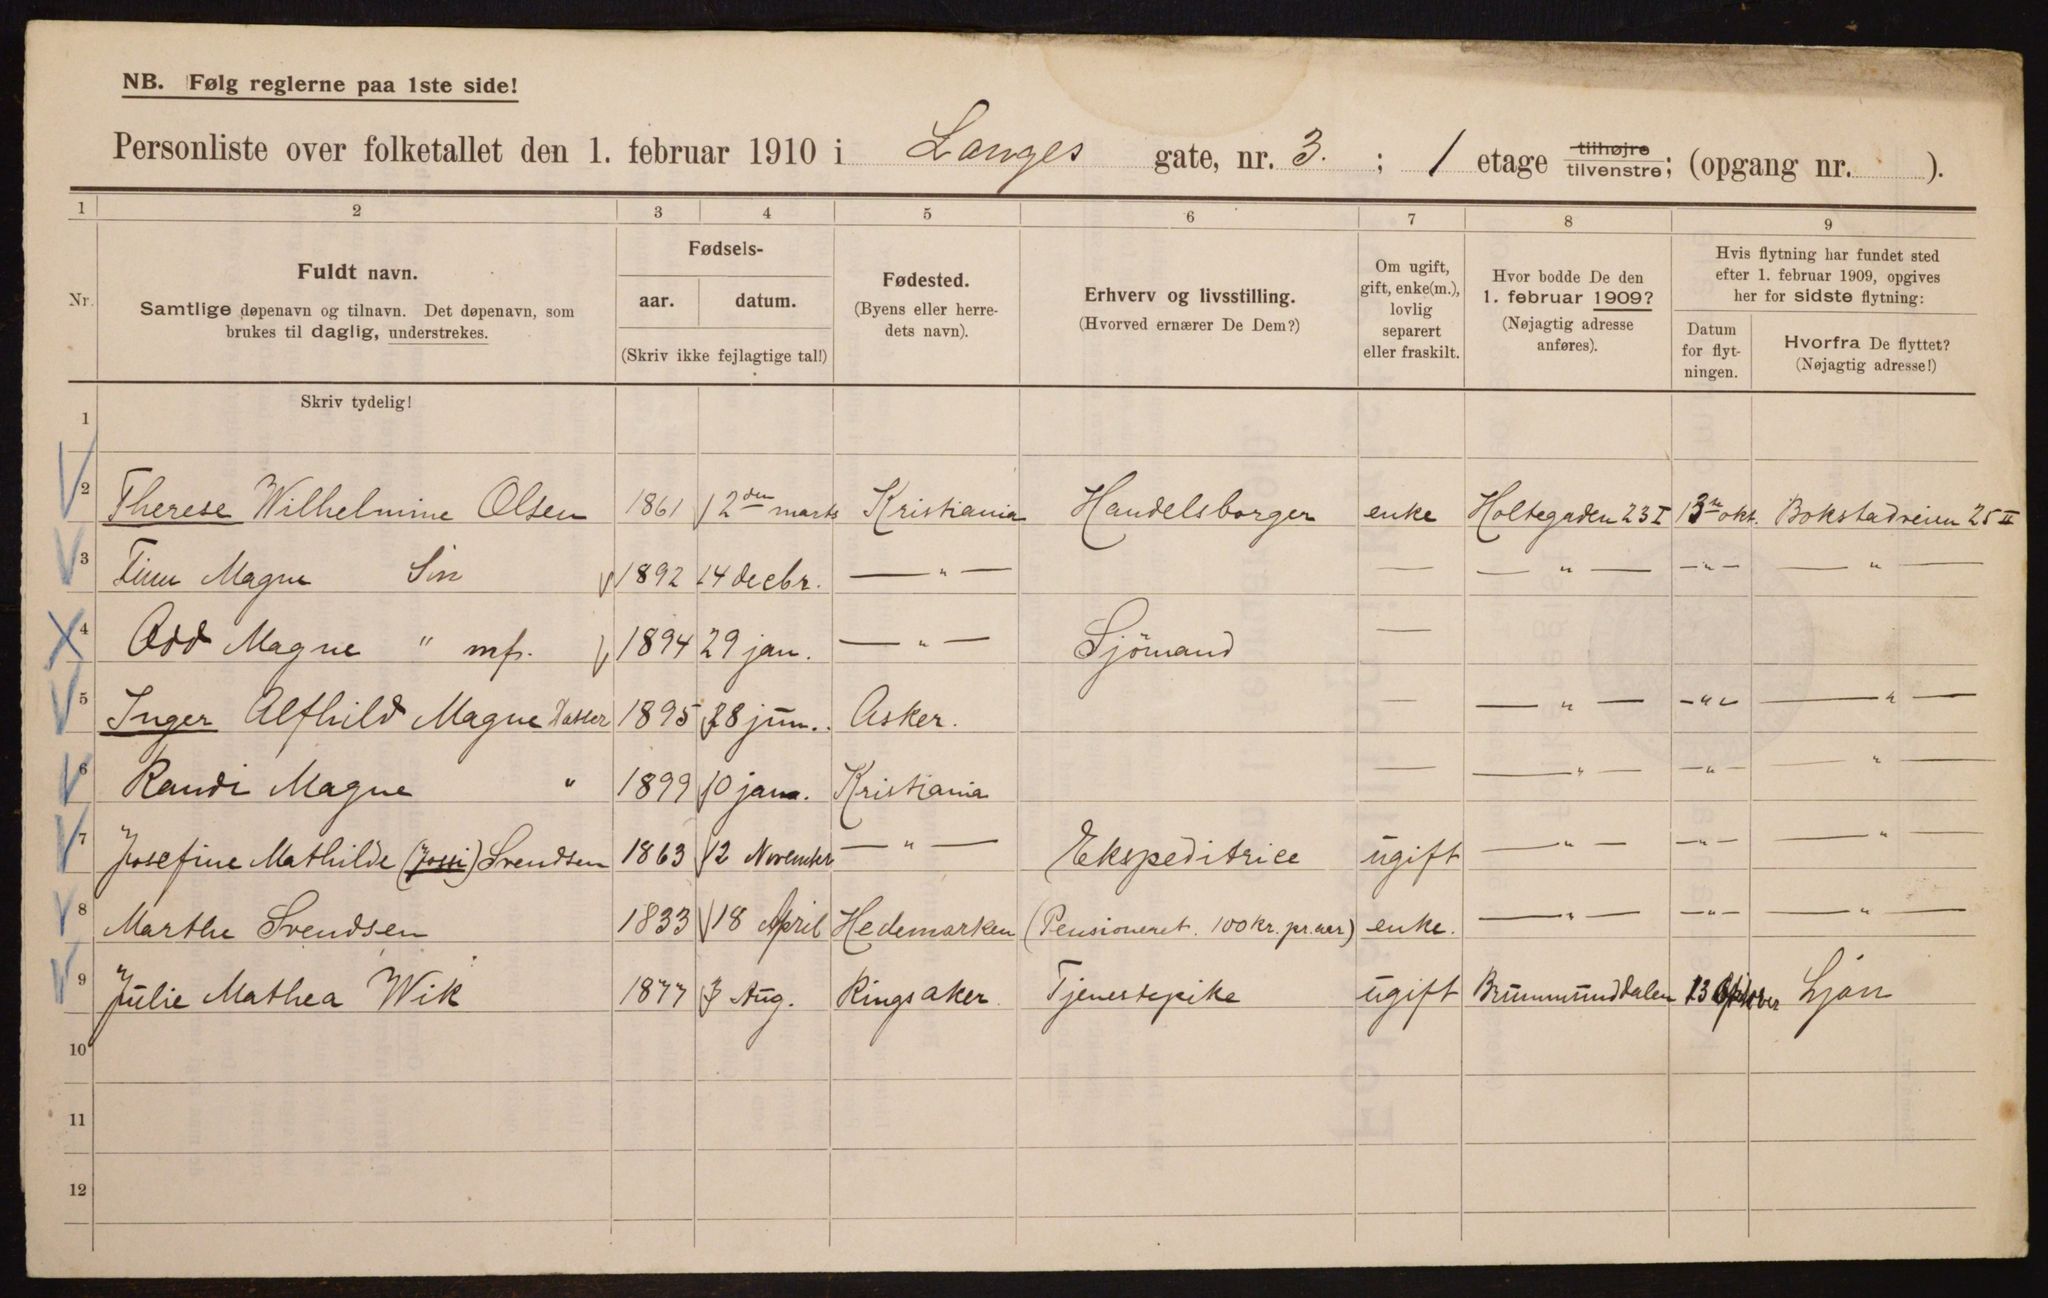 NB. Følg reglerne paa 1ste side!
Personliste over folketallet den 1. februar 1910 i Langes gate, nr. 3. ; 1 etage tilhøjre tilvenstre; (opgang nr. ).
1 2 3 4 5 6 7 8 9
Nr.
Fuldt navn.
Samtlige døpenavn og tilnavn. Det døpenavn, som
brukes til daglig, understrekes.
Fødsels-
aar. datum.
(Skriv ikke fejlagtige tal!)
Fødested.
(Byens eller herre-
dets navn).
Erhverv og livsstilling.
(Hvorved ernærer De Dem?)
Om ugift,
gift, enke(m.),
lovlig
separert
eller fraskilt.
Hvor bodde De den
1. februar 1909?
(Nøjagtig adresse
anføres).
Hvis flytning har fundet sted
efter 1. februar 1909, opgives
her for sidste flytning:
Datum
for flyt-
ningen.
Hvorfra De flyttet?
(Nøjagtig adresse!)
Skriv tydelig!
1
2 Therese Wilhelmine Olsen 1861 12den marts Kristiania Handelsborger enke Holtegaden 23 I 13 okt. Bokstadveien 25 II
3 Finn Magne Sön 1892 14 decbr. — " — — — " — — " — — " —
4 Odd Magne " mf. 1894 29 jan. — " — Sjömand —
5 Inger Alfhild Magne Datter 1895 28 jun. Asker. — — " — — " — — " —
6 Randi Magne " 1899 10 jan. Kristiania — — " — — " — — " —
7 Josefine Mathilde (Jossi) Svendsen 1863 12 November — " — Ekspeditrice ugift — " — — " — — " —
8 Marthe Svendsen 1833 18 April Hedemarken (Pensioneret. 100 kr. pr. aar) enke. — " — — " — — " —
9 Julie Mathea Wik 1877 3 Aug. Ringsaker Tjenestepike ugift Brummunddalen 13 Ljan
10
11
12